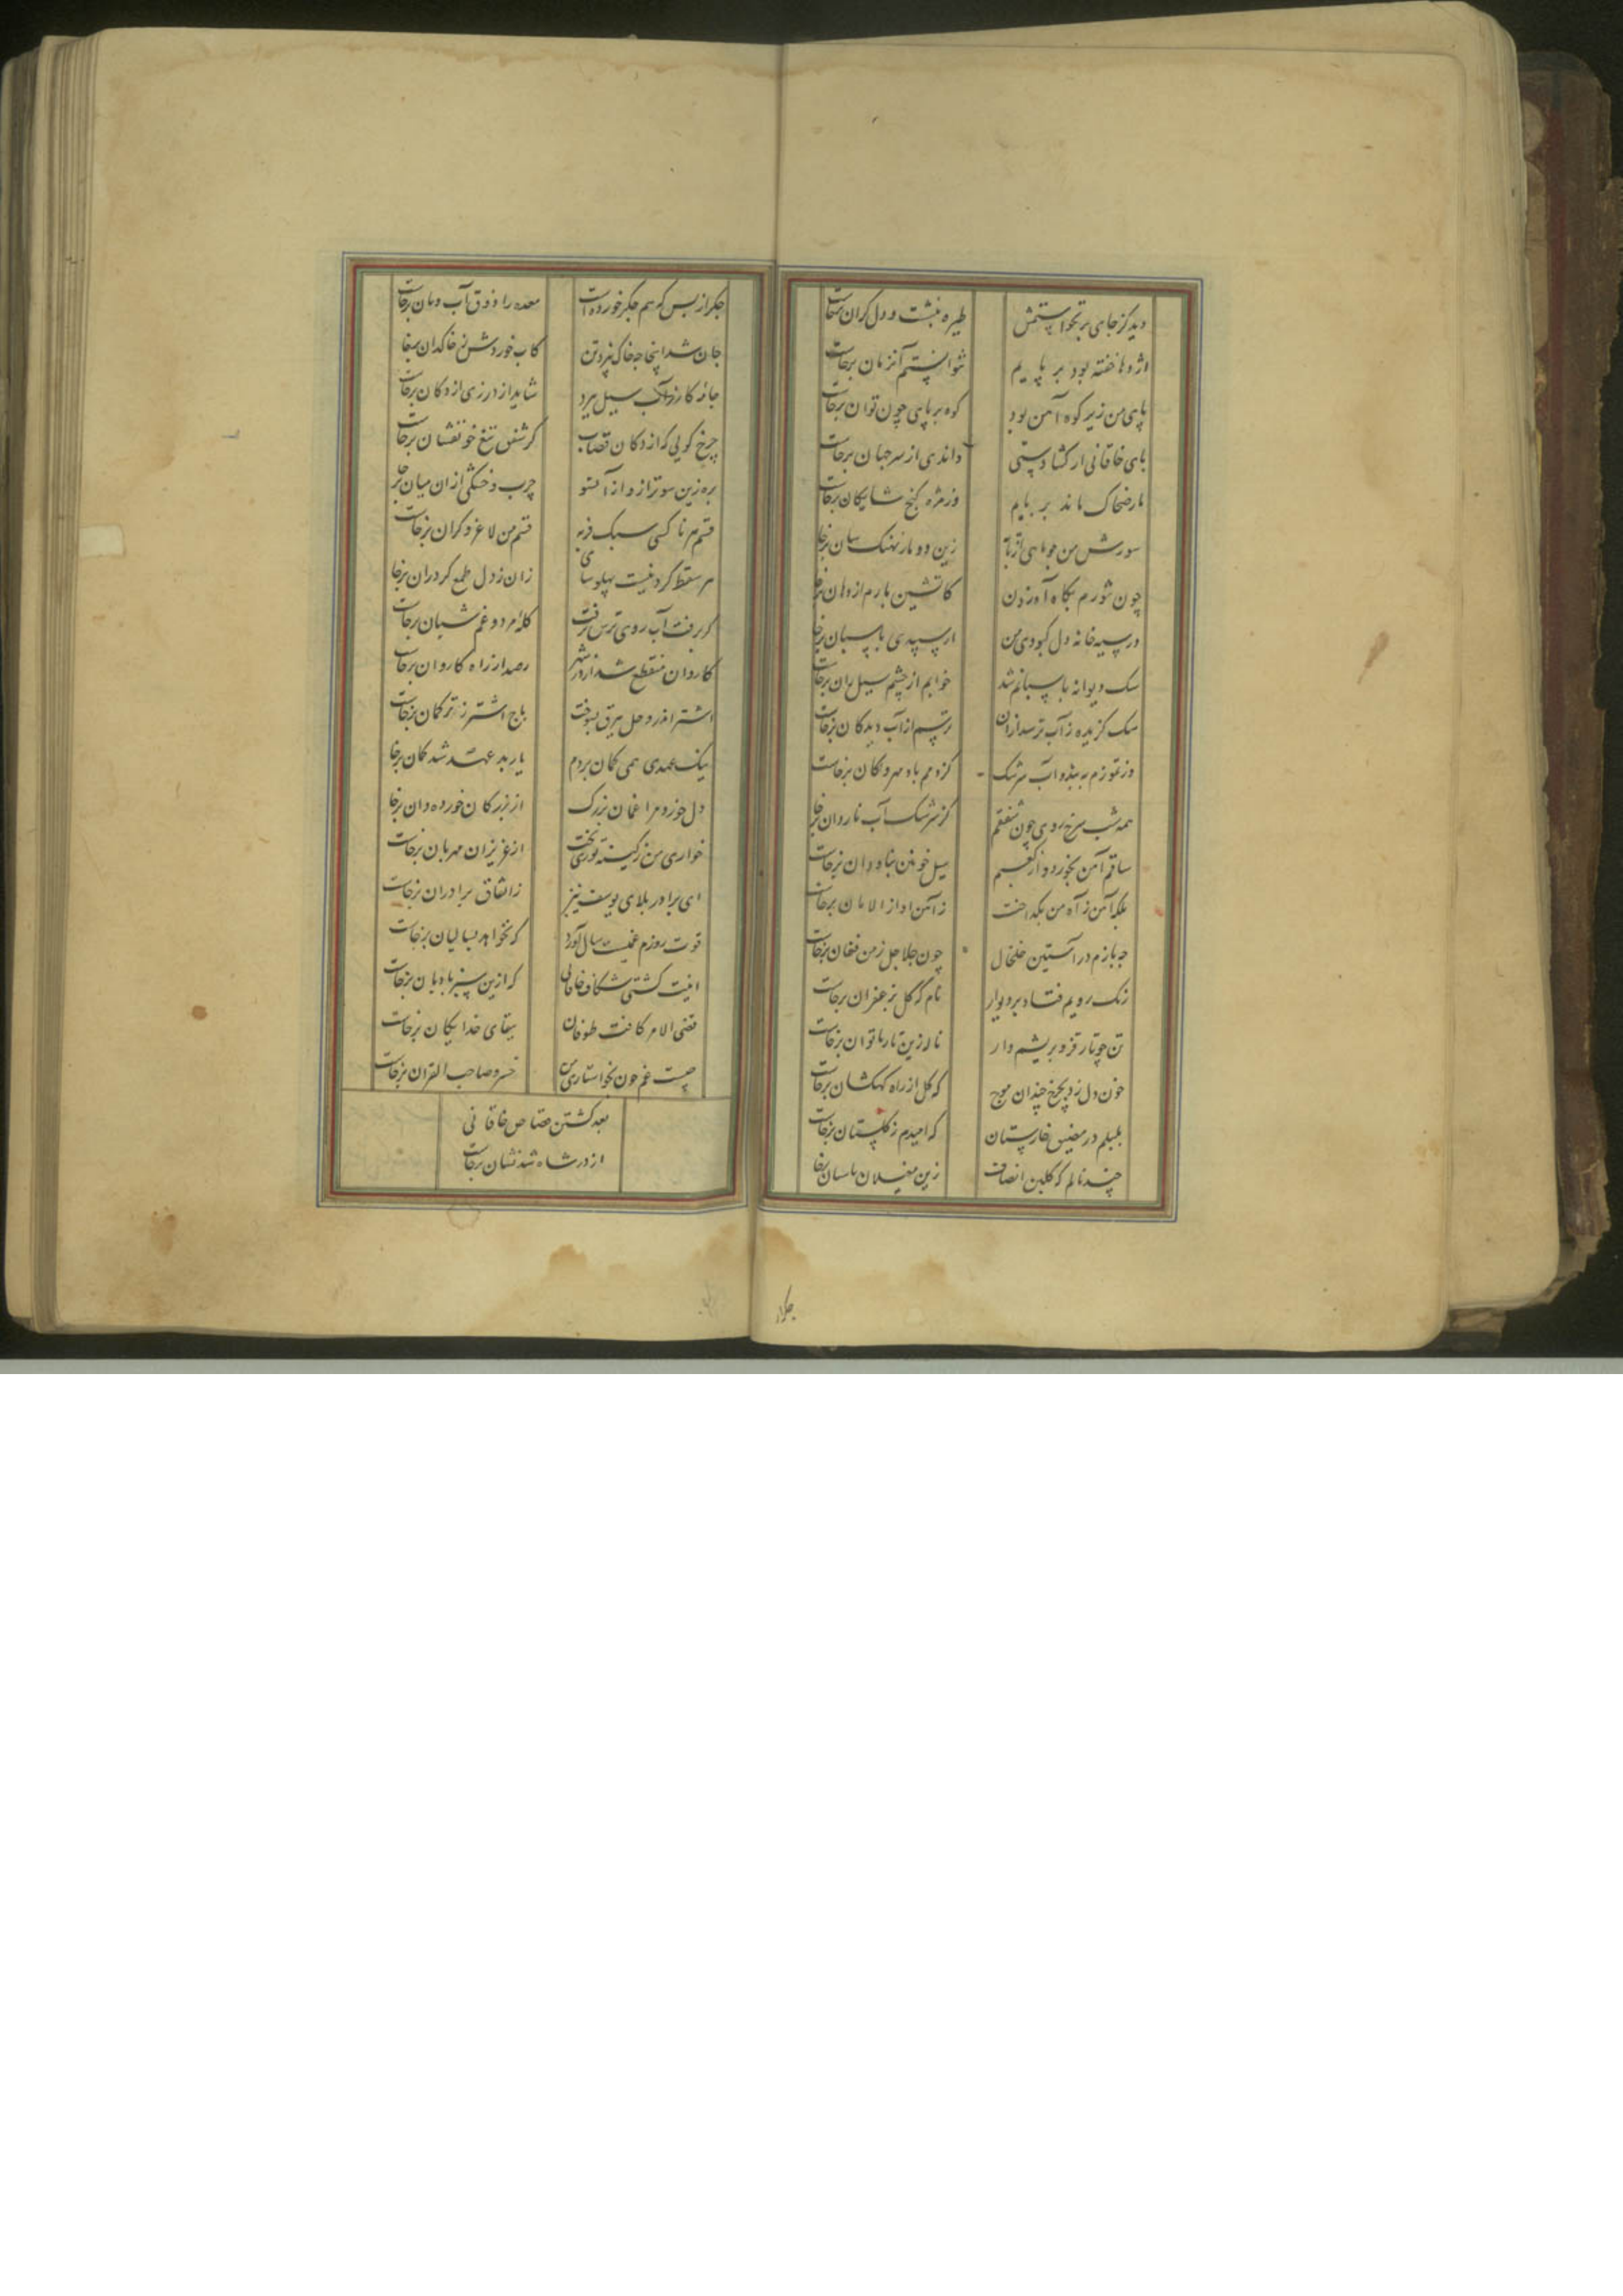 دید کز جای برنخواستمش طیره بنشست و دل گران برخاست
اژدها خفته بود بر پایم نتوانستم آنزمان برخاست
پای من زیر کوه آهن بود کوه بر پای چون توان برخاست
پای خاقانی ار گشادستی داندی از سر جهان برخاست
مار ضحاک ماند بر پایم وز مژه گنج شایگان برخاست
سوزش من چو ماهی از تابه زین دو مار نهنگ سان برخاست
چون تنورم بگاه آه زدن کاتشین مارم از دهان برخاست
در سیه خانه دل کبودی من از سپیدی پاسبان برخاست
سگ دیوانه پاسبانم شد خوابم از چشم سیل ران برخاست
سگ گزیده ز آب ترسد ازان ترسم از آب دیدگان برخاست
در تموزم ببندد آب سرشک کز دمم باد مهرگان برخاست
همه شب سرخ روی چون شفقم کز سرشک آب ناردان برخاست
ساقم آهن بخورد و از کعبم سیل خونین بناودان برخاست
بلکه آهن ز آه من بگداخت ز آهن آواز الامان برخاست
چو بازم در آستین خلخال چون جلاجل ز من فغان برخاست
رنگ رویم فتاد بر دیوار نام کهگل بزعفران برخاست
تن چو تار قز و بریشم وار ناله زین تار ناتوان برخاست
خون دل زد بچرخ چندان موج که گل از راه کهکشان برخاست
بلبلم در مضیق خارستان که امیدم ز گلستان برخاست
چند نالم که گلبن انصاف زین مغیلان باسان برخاست
جگر از بس که هم جگر خورده است معده را ذوق آب و نان برخاست
جان شد اینجا چه خاک بیزد تن کاب خوردش ز خاکدان برخاست
جامه گازر آب سیل ببرد شاید ار درزی از دکان برخاست
چرخ گویی که از دکان قصاب کز شفق تیغ خونفشان برخاست
بره زین سو ترازو از آنسو چرب و خشکی ازان میان برخاست
قسم هر ناکسی سبک فربه قسم من لاغر و گران برخاست
هر سقط گردنیست پهلو سای زان ز دل طمع گردران برخاست
گر برفت آب روی ترس برفت گله مرد و غم شبان برخاست
کاروان منقطع شد از در شهر رصد از راه کاروان برخاست
اشتر اندر وحل ببرق بسوخت باج اشتر ز ترکمان برخاست
نیک عهدی همی گمان بردم یار بد عهد شد گمان برخاست
دل خورد مرا غمان بزرگ از بزرگان خورده دان برخاست
خواری من ز کینه توزی بخت از عزیزان مهربان برخاست
ای برادر بلای یوسف نیز از نفاق برادران برخاست
قوت روزم غمیست سال آورد که نخواهد بسالیان برخاست
اینت کشتی شکاف خاقانی که ازین سبز بادبان برخاست
قضی الامر کافت طوفان ببقای خدایگان برخاست
چیست غم چون بخواستاری من خسرو صاحب القران برخاست
بعد کشتن قصاص خاقانی
از در شاه شه نشان برخاست